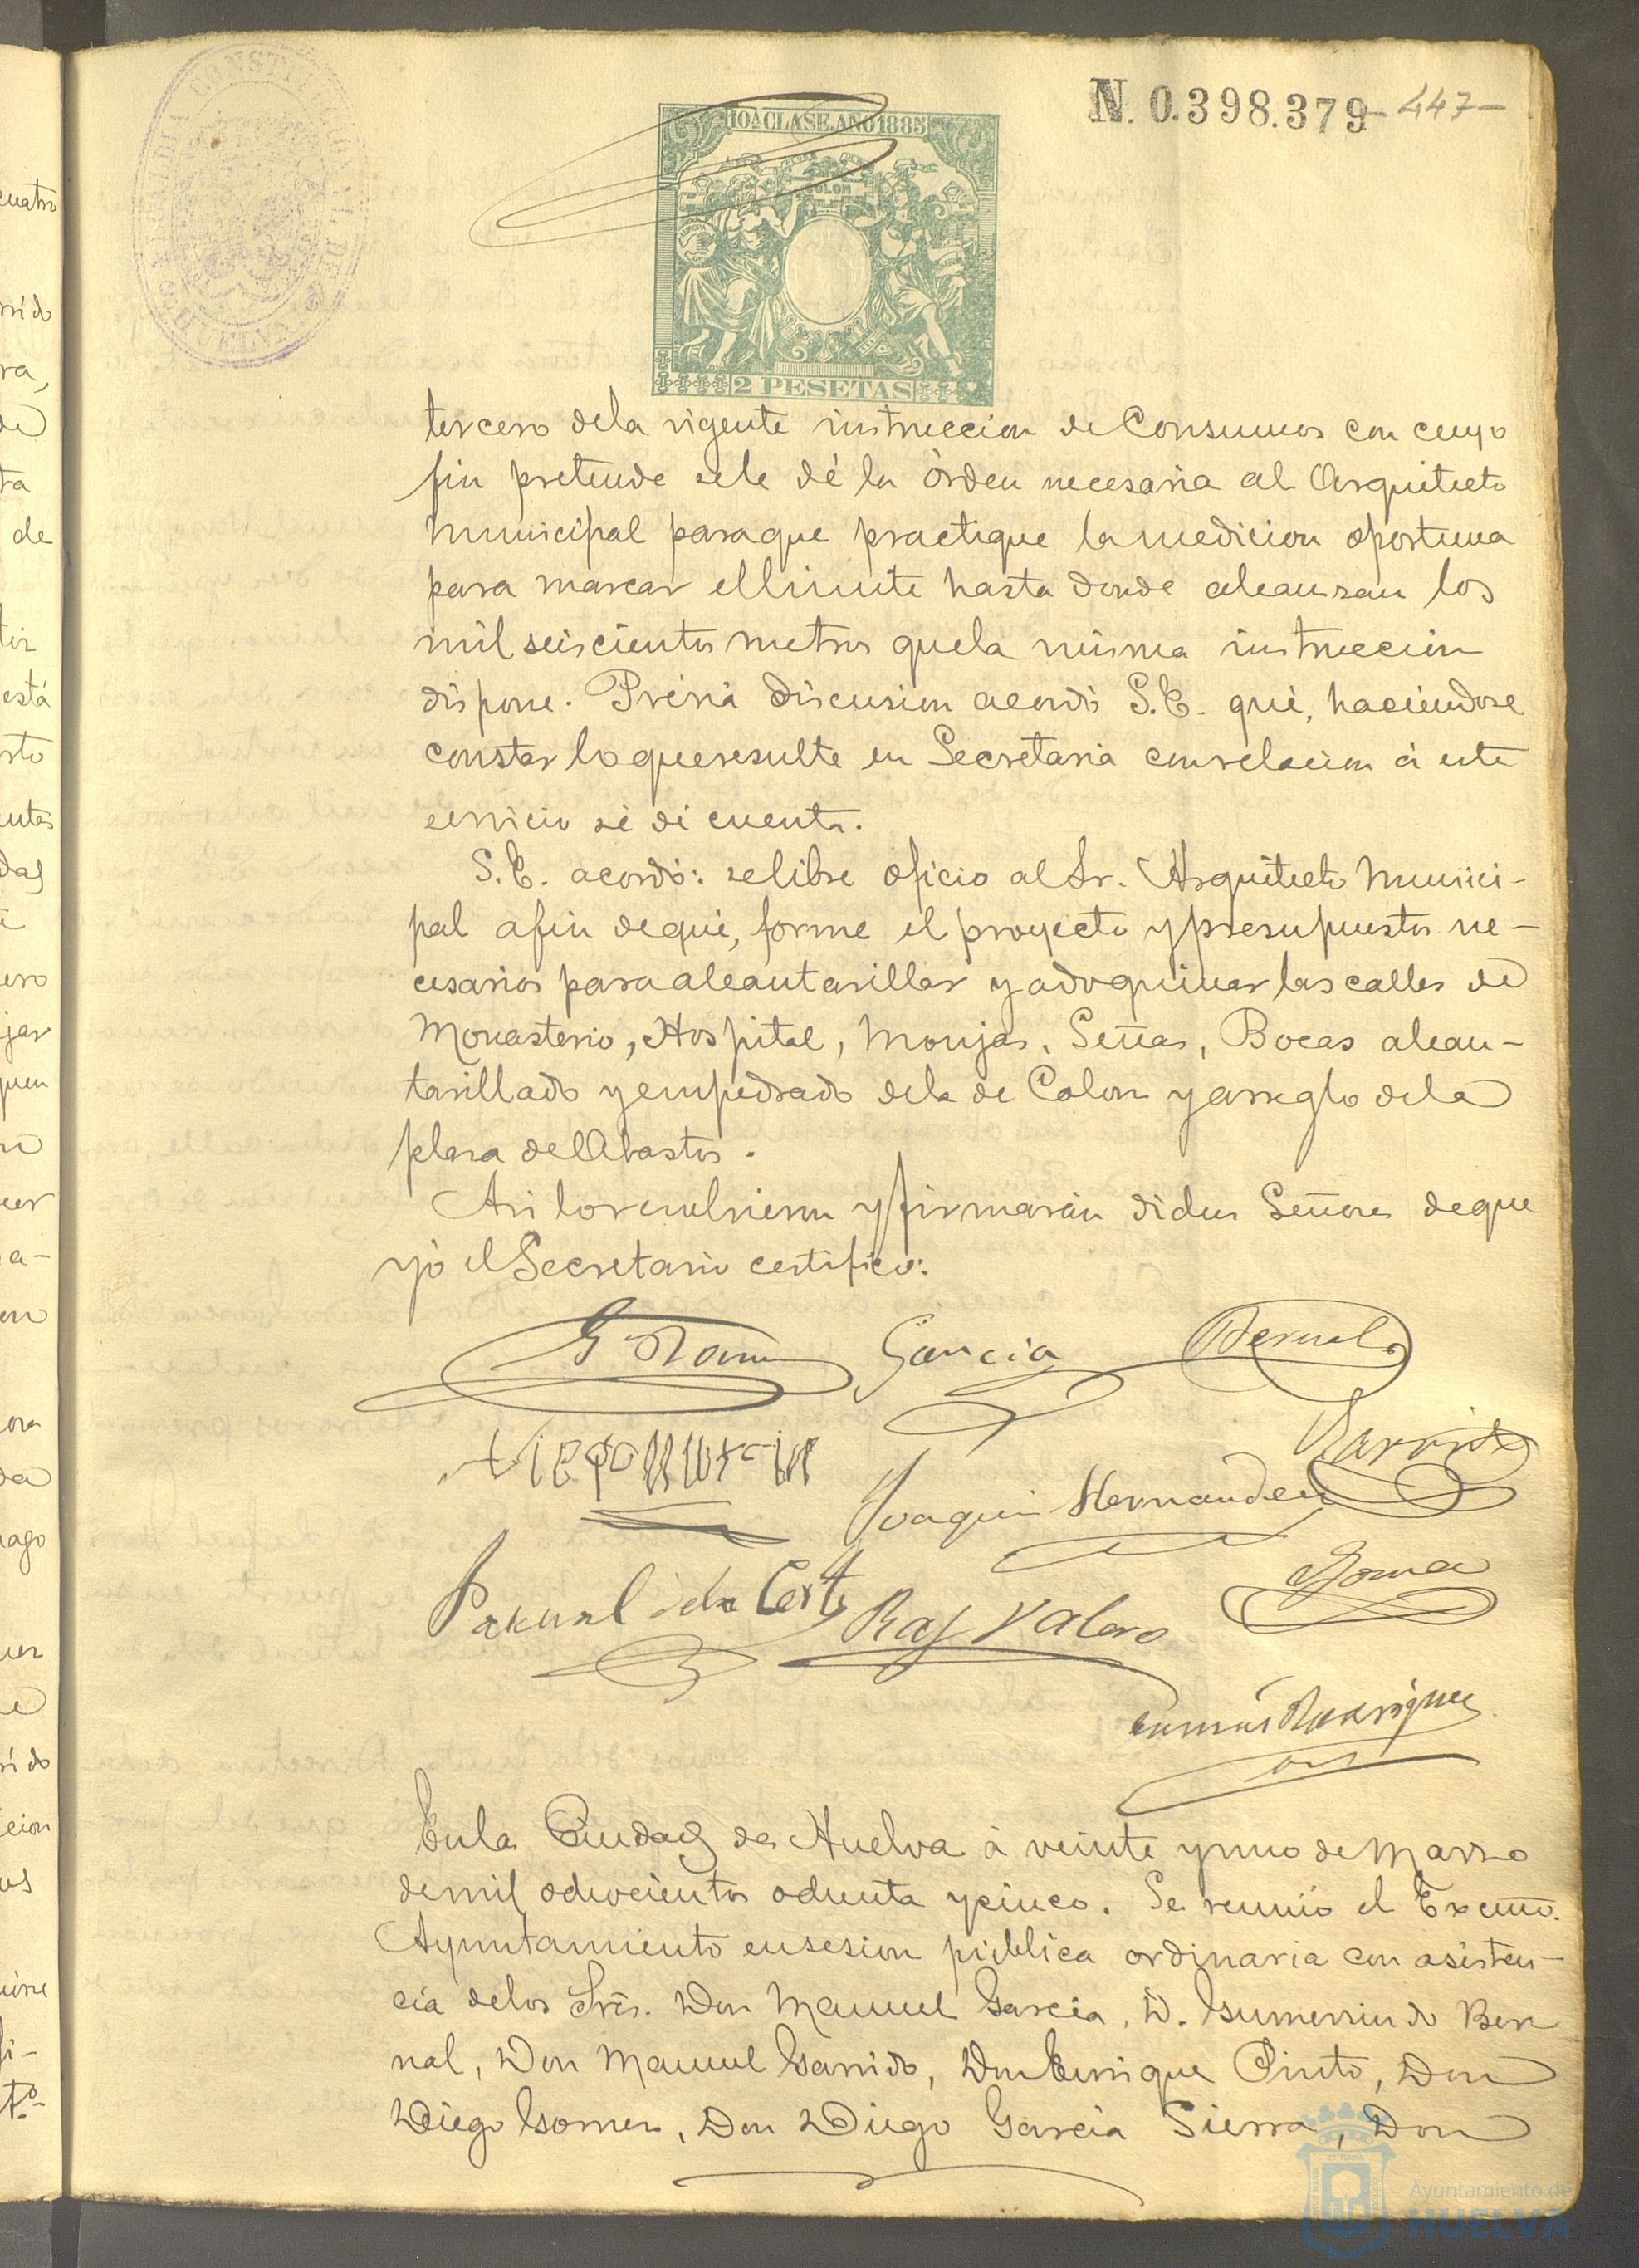 N. 0.398.379 - 447 -
ALCALDIA CONSTITUCIONAL DE HUELVA
10ª CLASE. AÑO 1885
COLON
2 PESETAS
tercero dela vigente instruccion de Consumos con cuyo
fin pretende sele dé la órden necesaria al Arquitecto
Municipal paraque practique la medicion oportuna
para marcar ellimite hasta donde alcanzan los
mil seiscientos metros quela misma instruccion
dispone. Prévia discusion acordó S.E. qué, haciendose
constar lo queresulte en Secretaria conrelacion á este
servicio sé dé cuenta.
S.E. acordó: selibre oficio al Sr. Arquitecto Munici-
pal afin dequé, forme el proyecto y presupuestos ne-
cesarios paraalcantarillar y adoquinar lascalles de
Monasterio, Hospital, Monjas, Señas, Bocas alcan-
tarillado y empedrado dela de Colon y arreglo dela
plaza delAbastos.
Asi loresolvieron y firmarán dichos Señores deque
yó el Secretario certifico:
Garcia Bernal
Garrido
Joaquin Hernandez
Pascual dela Corte Raf Valero Gomez
Tomás Rodriguez
Enla Ciudad de Huelva á veinte yuno de Marzo
demil ochocientos ochenta ycinco. Se reunió el Excmo.
Ayuntamiento ensesion pública ordinaria con asisten-
cia delos Sres. Don Manuel Garcia, D. Gumersindo Ber
nal, Don Manuel Garrido, Don Enrique Pinto, Don
Diego Gomez, Don Diego Garcia Sierra, Don
Ayuntamiento de
HUELVA